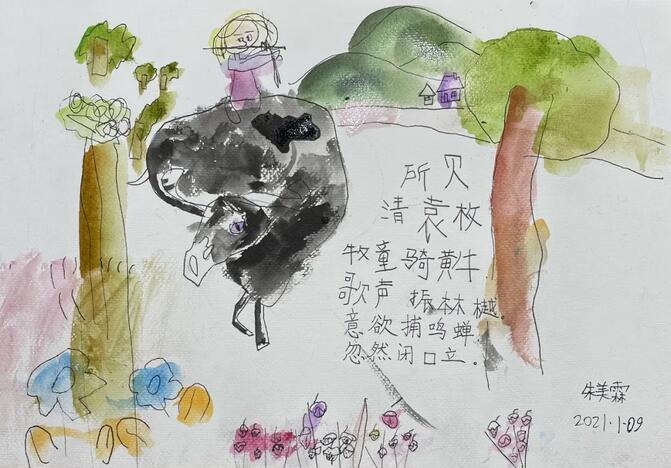 所贝
清袁枚
牧童骑黄牛
歌声振林樾
意欲捕鸣蝉
忽然闭口立.
朱美霖
2021.1.09